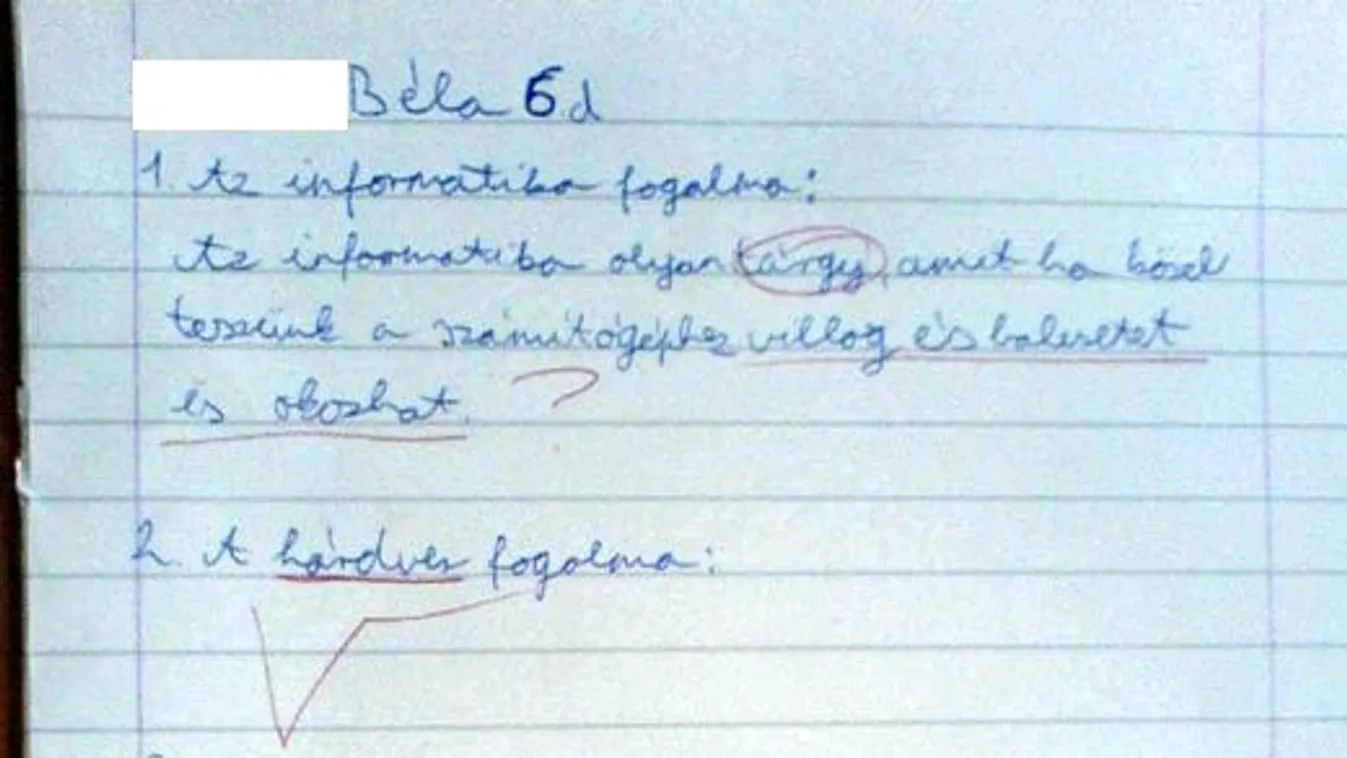 Béla 6.d
1. Az informatika fogalma:
Az informatika olyan tárgy, amit ha közel
teszünk a számítógéphez villog és balesetet
és okozhat.
2. A hárdver fogalma: